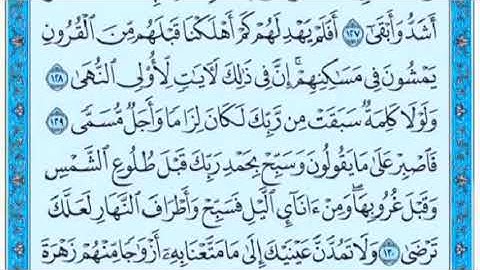 أَشَدُّ وَأَبْقَىٰٓ ١٢٧ أَفَلَمْ يَهْدِ لَهُمْ كَمْ أَهْلَكْنَا قَبْلَهُم مِّنَ ٱلْقُرُونِ
يَمْشُونَ فِى مَسَٰكِنِهِمْ ۗ إِنَّ فِى ذَٰلِكَ لَءَايَٰتٍ لِّأُو۟لِى ٱلنُّهَىٰ ١٢٨
وَلَوْلَا كَلِمَةٌ سَبَقَتْ مِن رَّبِّكَ لَكَانَ لِزَامًا وَأَجَلٌ مُّسَمًّى ١٢٩
فَٱصْبِرْ عَلَىٰ مَا يَقُولُونَ وَسَبِّحْ بِحَمْدِ رَبِّكَ قَبْلَ طُلُوعِ ٱلشَّمْسِ
وَقَبْلَ غُرُوبِهَا ۖ وَمِنْ ءَانَآئِ ٱلَّيْلِ فَسَبِّحْ وَأَطْرَافَ ٱلنَّهَارِ لَعَلَّكَ
تَرْضَىٰ ١٣٠ وَلَا تَمُدَّنَّ عَيْنَيْكَ إِلَىٰ مَا مَتَّعْنَا بِهِۦٓ أَزْوَٰجًا مِّنْهُمْ زَهْرَةَ